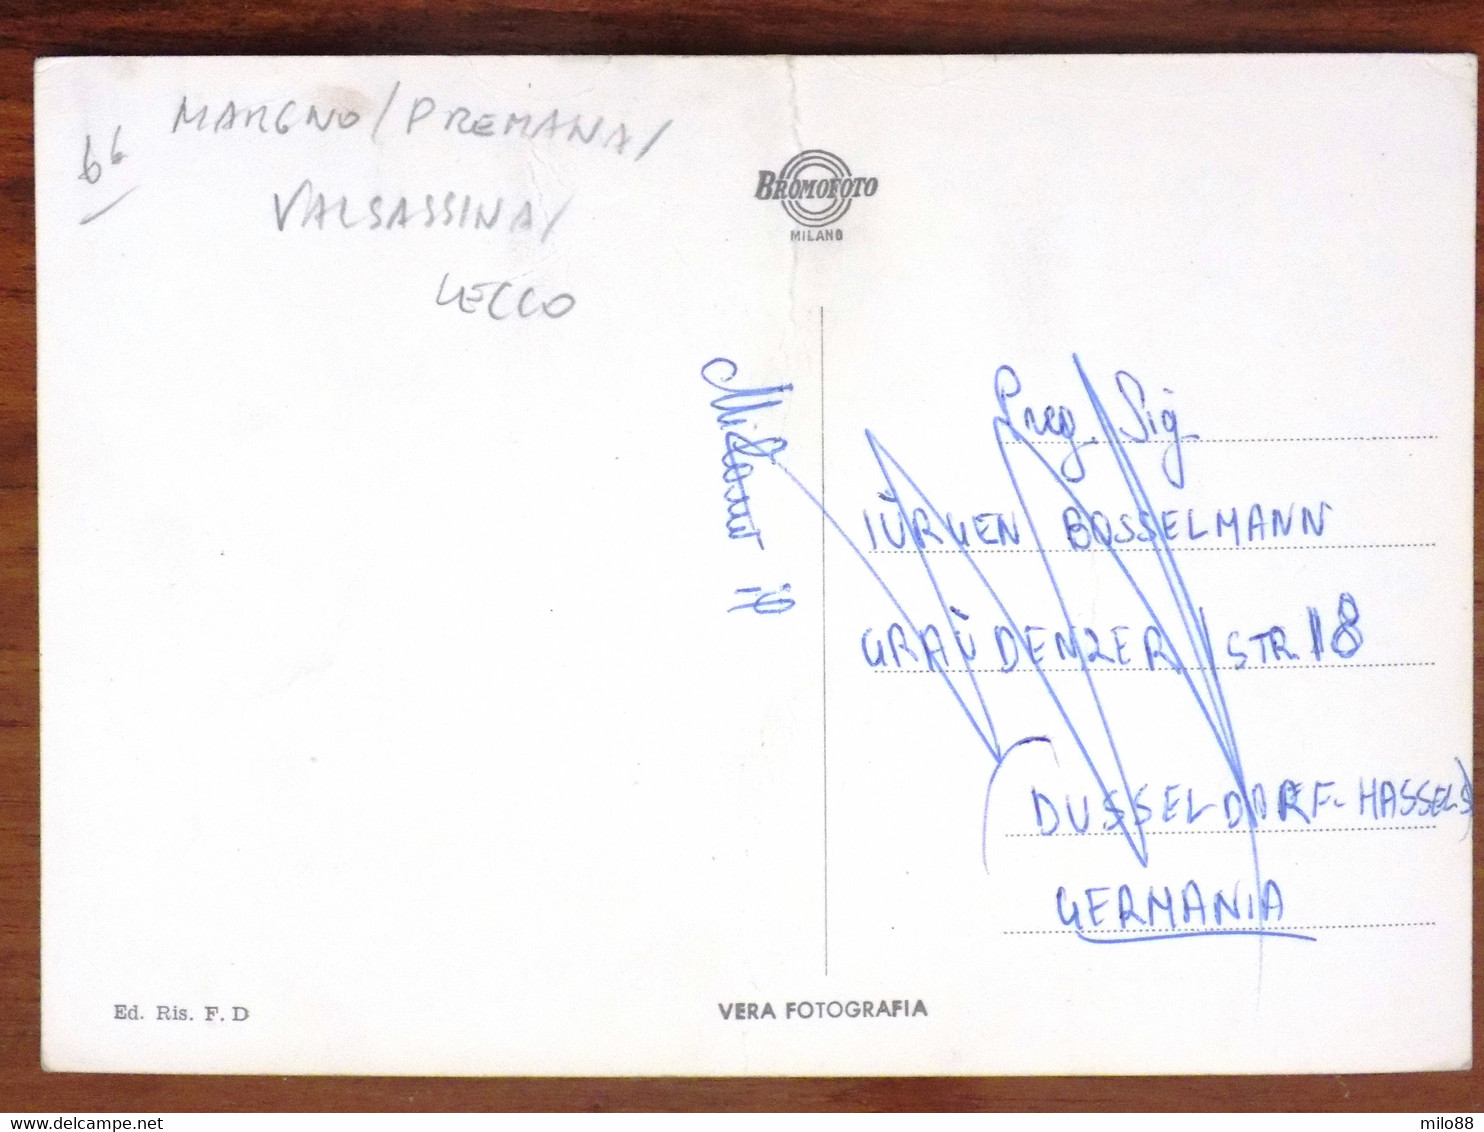 66
MARGNO / PREMANA /
VALSASSINA /
LECCO
BROMOFOTO
MILANO
Preg. Sig
IÜRGEN BOSSELMANN
GRAÙDENZER STR. 18
(DUSSELDORF-HASSELS)
GERMANIA
Ed. Ris. F. D
VERA FOTOGRAFIA
delcampe.net
milo88